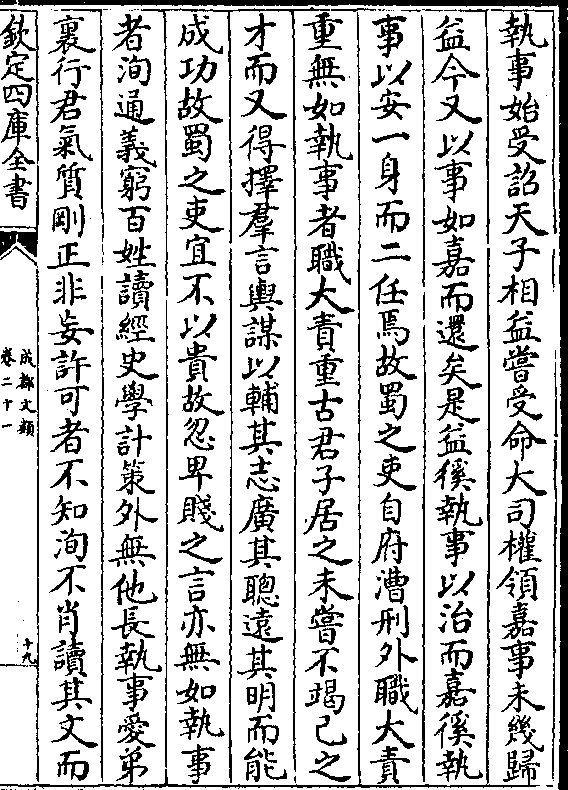 執事始受詔天子相益嘗受命大司權領嘉事未幾歸
益今又以事如嘉而還矣是益徯執事以治而嘉徯執
事以安一身而二任焉故蜀之吏自府漕刑外職大責
重無如執事者職大責重古君子居之未嘗不竭己之
才而又得擇羣言輿謀以輔其志廣其聰遠其明而能
成功故蜀之吏宜不以貴故忽卑賤之言亦無如執事
者洵通義窮百姓讀經史學計策外無他長執事愛弟
裏行君氣質剛正非妄許可者不知洵不肖讀其文而
欽定四庫全書
成都文類
卷二十一
十九